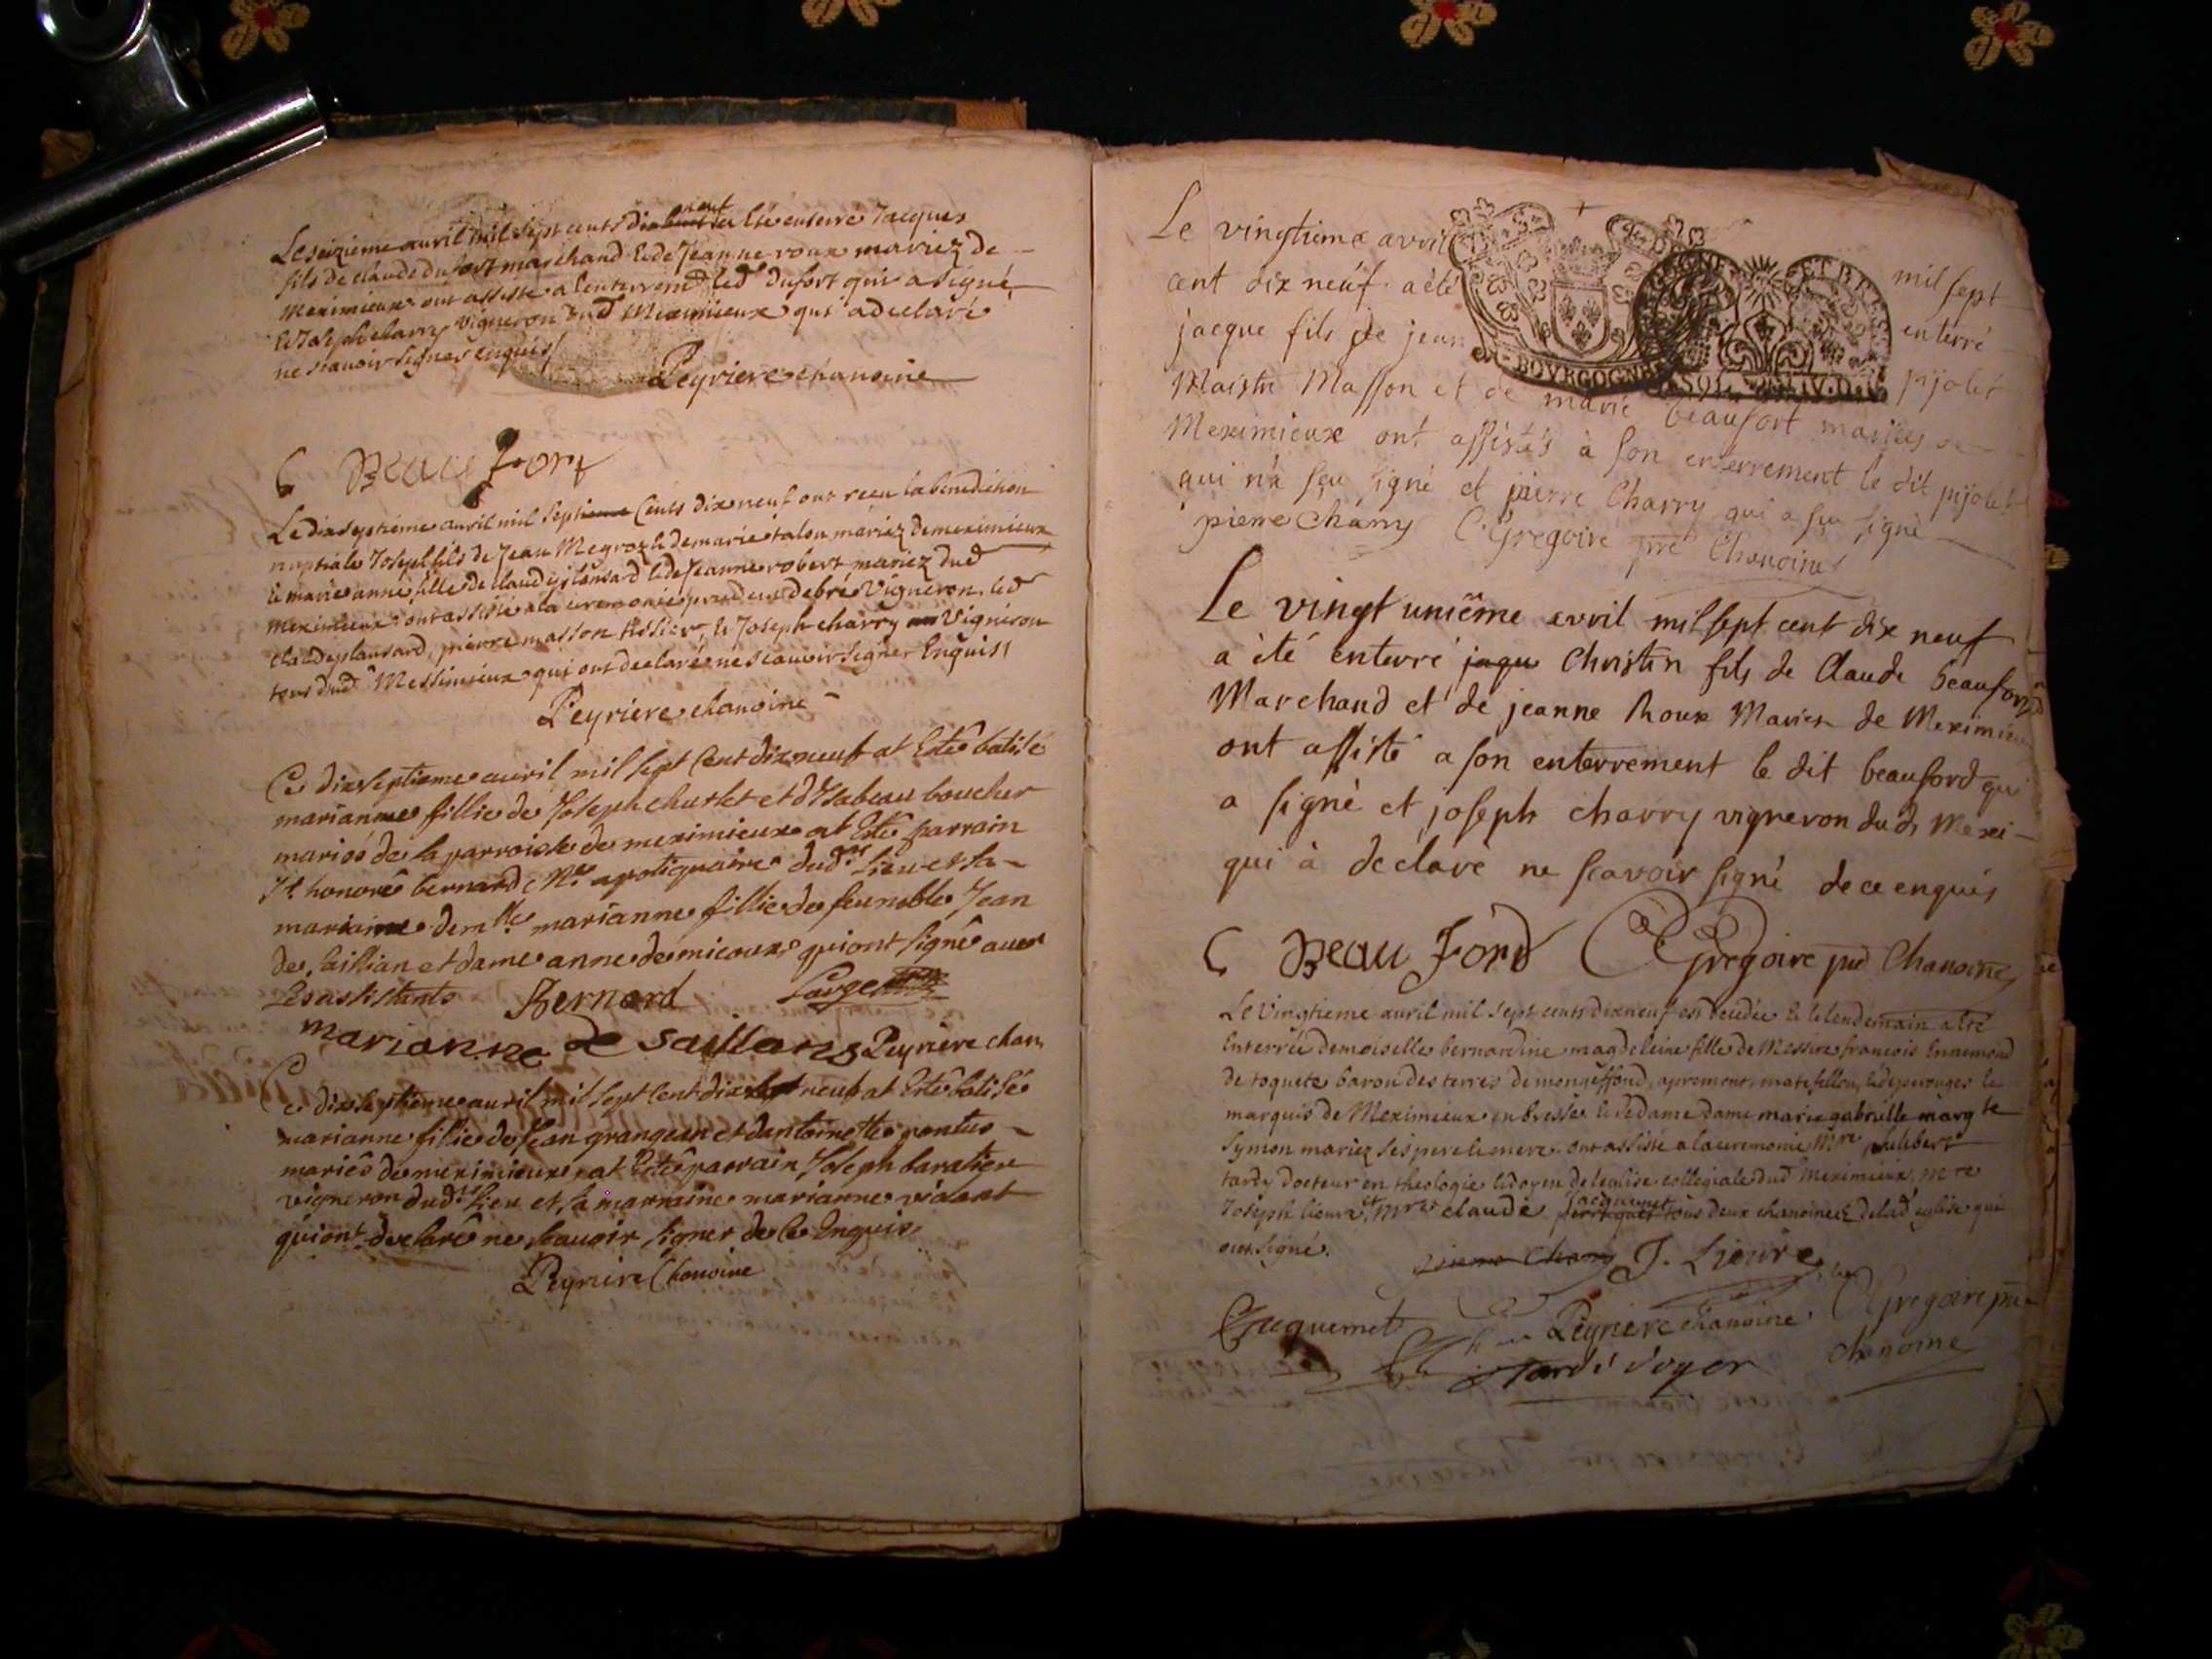 Le seizieme avril mil sept cents dix neuf a eté enterré Jacques
fils de claude dufort marchand & de Jeanne roux mariez de
Meximieux ont assisté a l'enterremt led dufort qui a signé
& Joseph charry vigneron dud Meximieux qui a declaré
ne scauoir signer enquis
Peyriere chanoine
C Beau Fort
Le dixseptiéme auril mil sept Cents dix neuf ont receu la benediction
nuptiale Joseph fils de Jean Megroz & de marie talon mariez de meximieux
& marie anne fille de claude planard & de Jeanne robert mariez dud
meximieux ont assisté a la ceremonie debré Vigneron led
claude planard, pierre masson tissier, & Joseph charry Vigneron
tous dud Messimieux qui ont declaré ne scauoir signer Enquis
Peyriere chanoine
Ce dixseptieme auril mil sept Cent dix neuf at Esté batisé
marianne fillie de Joseph churlet et d'Isabeau boucher
mariés de la parroisle de meximieux at Esté parrain
Sr. honoré bernard Me apotiquaire dud. lieu et sa
maraine demlle marianne fillie de feu noble Jean
de saillian et dame anne de micoux, qui ont signé auec
Les asistants Bernard
marianne de saillans Peyriere chan
Ce dixseptieme auril mil sept Cent dix neuf at Esté batisé
marianne fillie de Jean grangean et dantoinette pontus
mariés de meximieux, at Esté parrain Joseph baratier
vigneron dud. lieu et sa marraine marianne vidant
qui ont declaré ne scauoir signer de Ce Enquis,
Peyriere Chanoine
Le vingtieme avril mil sept
cent dix neuf a été enterré
jacque fils de jean pijolet
BOVRGOGNE SOL
Maistre Masson et de marie beaufort mariées de
Meximieux ont assistés à son enterrement le dit pijolet
qui n'a seu signé et pierre Charry qui a seu signé
pierre charry C Gregoire pre Chanoine
Le vingt uniême avril mil sept cent dix neuf
a été enterré jaque Christin fils de Claude beauford
Marchand et de jeanne Roux Mariez de Meximieu
ont assisté a son enterrement le dit beauford qui
a signé et joseph charry vigneron du dt Mexi-
qui à declaré ne scavoir signé de ce enquis
C Beau Ford C Gregoire pre Chanoine
Le Vingtieme auril mil sept cents dixneuf est decedée & le lendemain a été
Enterrée demoiselle bernardine magdeleine fille de Messire francois Ennemond
de toquet baron des terres de mongeffond, apremont, matafellon, & de perouges le
marquis de Meximieux en bresse, & de dame dame marie gabrielle margte
Symon mariez ses pere & mere. ont assisté a la ceremonie Mre philibert
tardy docteur en theologie & doyen de l'eglise collegiale dud Meximieux, mre
Joseph lieure, et mre claude Jacquemet tous deux chanoines de lad eglise qui
ont signé.
pierre Charry J. Lieure
C Jacquemet Peyriere chanoine C Gregoire pre
Tardi doyen chanoine